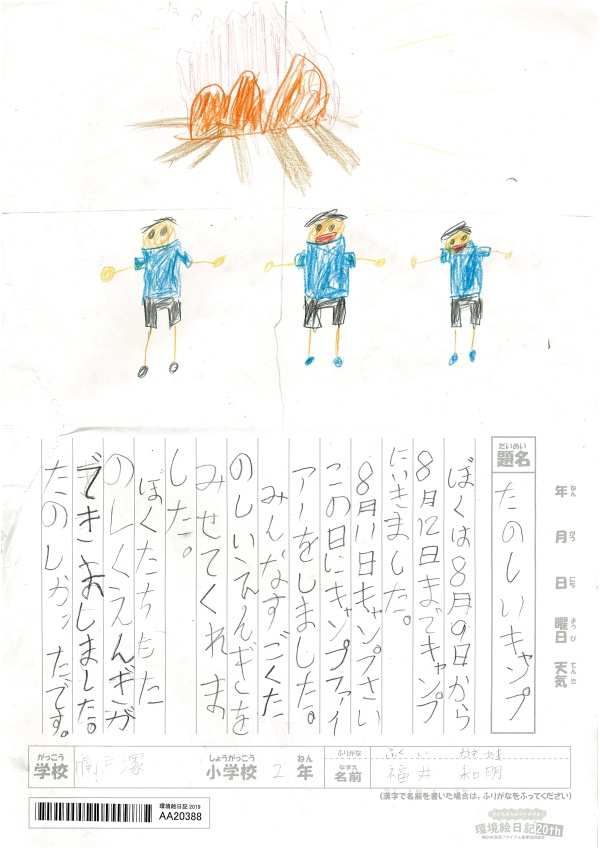 だいめい
題名
たのしいキャンプ
年 ねん
月 がつ
日 にち
曜日 ようび
天気 てんき
ぼくは8月9日から
8月12日までキャンプ
にいきました。
8月11日キャンプさい
この日にキャンプファイ
アーをしました。
みんなすごくた
のしいえんぎを
みせてくれま
した。
ぼくたちもた
のしくえんぎが
できましました。
たのしかったです。
がっこう
学校
南戸塚
しょうがっこう
小学校
2
ねん
年
ふりがな
ふくい かずあき
なまえ
名前
福井 和明
(漢字で名前を書いた場合は、ふりがなをふってください)
環境絵日記 2019
AA20388
環境絵日記20th